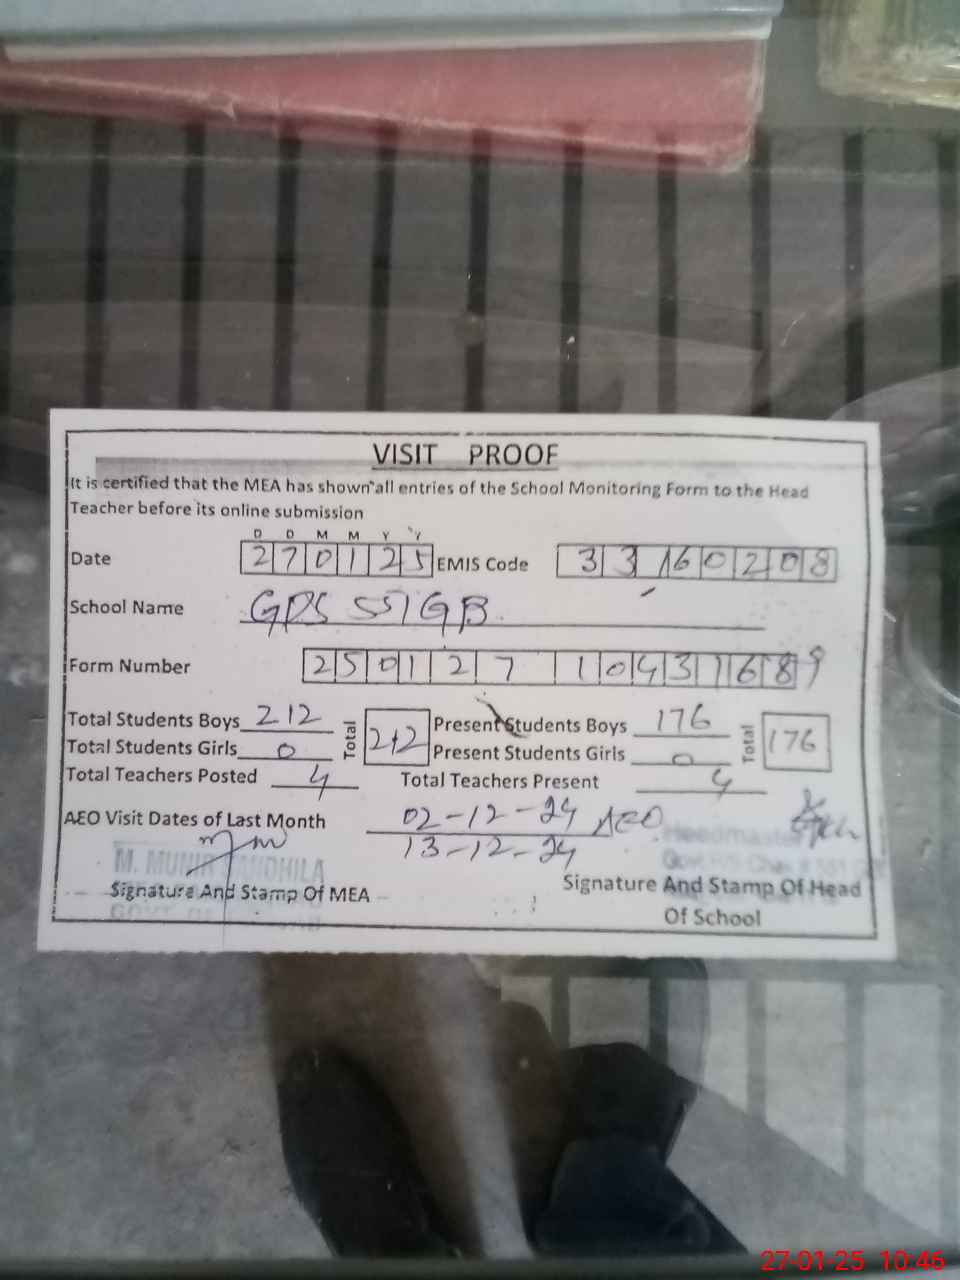 VISIT PROOF
It is certified that the MEA has shown all entries of the School Monitoring Form to the Head
Teacher before its online submission
D D M M Y Y
Date 270125 EMIS Code 33160208
School Name GPS 551 GB
Form Number 250127 104311689
Total Students Boys 212 Total 212 Present Students Boys 176 Total 176
Total Students Girls 0 Present Students Girls 0
Total Teachers Posted 4 Total Teachers Present 4
AEO Visit Dates of Last Month 02-12-24 AEO
13-12-24
Headmaster
M. MUNIR
Signature And Stamp Of MEA
Signature And Stamp Of Head
Of School
27-01-25 10:46